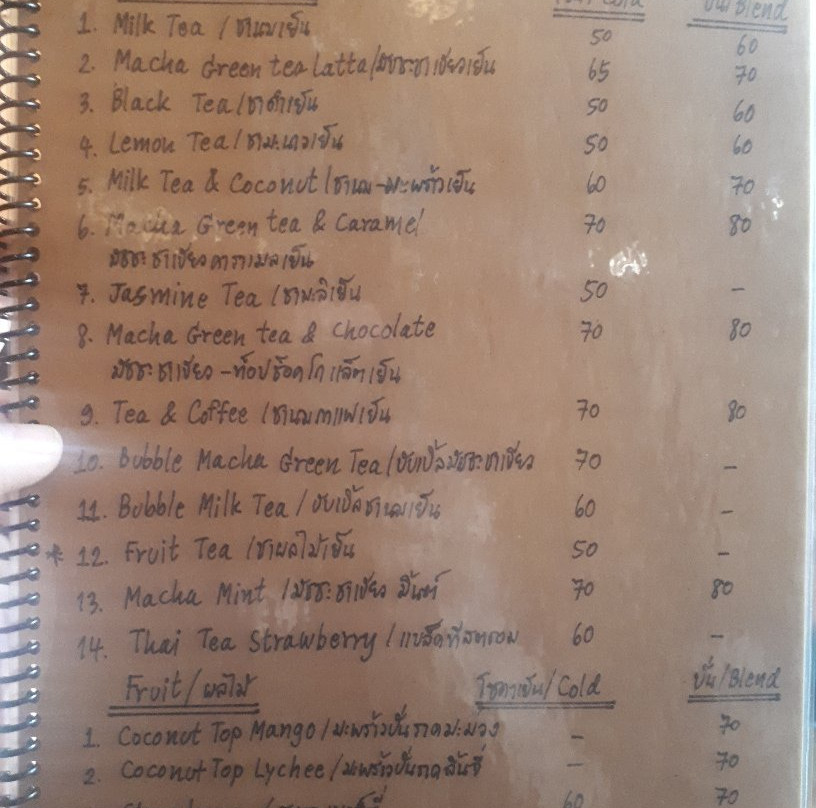 Cold Blend
1. Milk Tea / ชานมเย็น 50 60
2. Macha Green tea Latta / มัชชะชาเขียวเย็น 65 70
3. Black Tea / ชาดำเย็น 50 60
4. Lemon Tea / ชามะนาวเย็น 50 60
5. Milk Tea & Coconut / ชานม-มะพร้าวเย็น 60 70
6. Macha Green tea & Caramel 70 80
มัชชะชาเขียวคาราเมลเย็น
7. Jasmine Tea / ชามะลิเย็น 50 -
8. Macha Green tea & Chocolate 70 80
มัชชะชาเขียว-ท็อปช็อคโกแล็ตเย็น
9. Tea & Coffee / ชานมกาแฟเย็น 70 80
10. Bubble Macha Green Tea / บับเบิ้ลมัชชะชาเขียว 70 -
11. Bubble Milk Tea / บับเบิ้ลชานมเย็น 60 -
* 12. Fruit Tea / ชาผลไม้เย็น 50 -
13. Macha Mint / มัชชะชาเขียว มิ้นท์ 70 80
14. Thai Tea Strawberry / 60 -
Fruit / ผลไม้ โซดาเย็น / Cold ปั่น / Blend
1. Coconut Top Mango / มะพร้าวปั่นราดมะม่วง - 70
2. Coconut Top Lychee / มะพร้าวปั่นราดลิ้นจี่ - 70
60 70